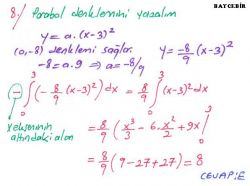 BAYCEBİR
8./ Parabol denklemini yazalım
y = a.(x-3)²
(0,-8) denklemi sağlar.
-8 = a.9 ⇒ a = -8/9
y = -8/9 (x-3)²
-∫₀³ (-8/9 (x-3)²) dx = 8/9 ∫₀³ (x-3)² dx
x ekseninin altındaki alan
= 8/9 (x³/3 - 6.x²/2 + 9x |₀³
= 8/9 (9-27+27) = 8
CEVAP:E